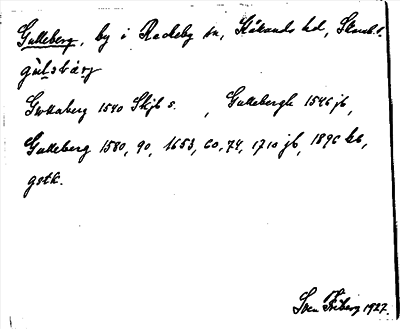 Gulleberg, by i Rackeby sn, Kållands hd, Skarab. l.
gúlsbärj
Gullaberg 1540 Skjb s. , Gullebergh 1546 jb,
Gulleberg 1580, 90, 1653, 60, 74, 1710 jb, 1896 kb,
gstk.
Sven Friberg 1927.